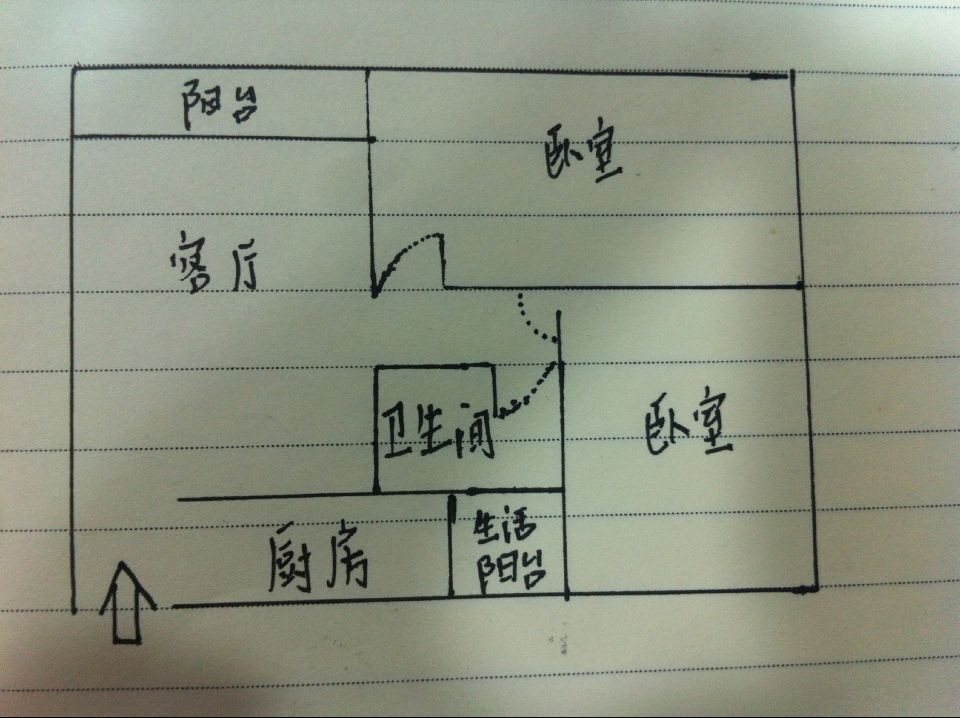 阳台
卧室
客厅
卫生间
卧室
厨房
生活
阳台